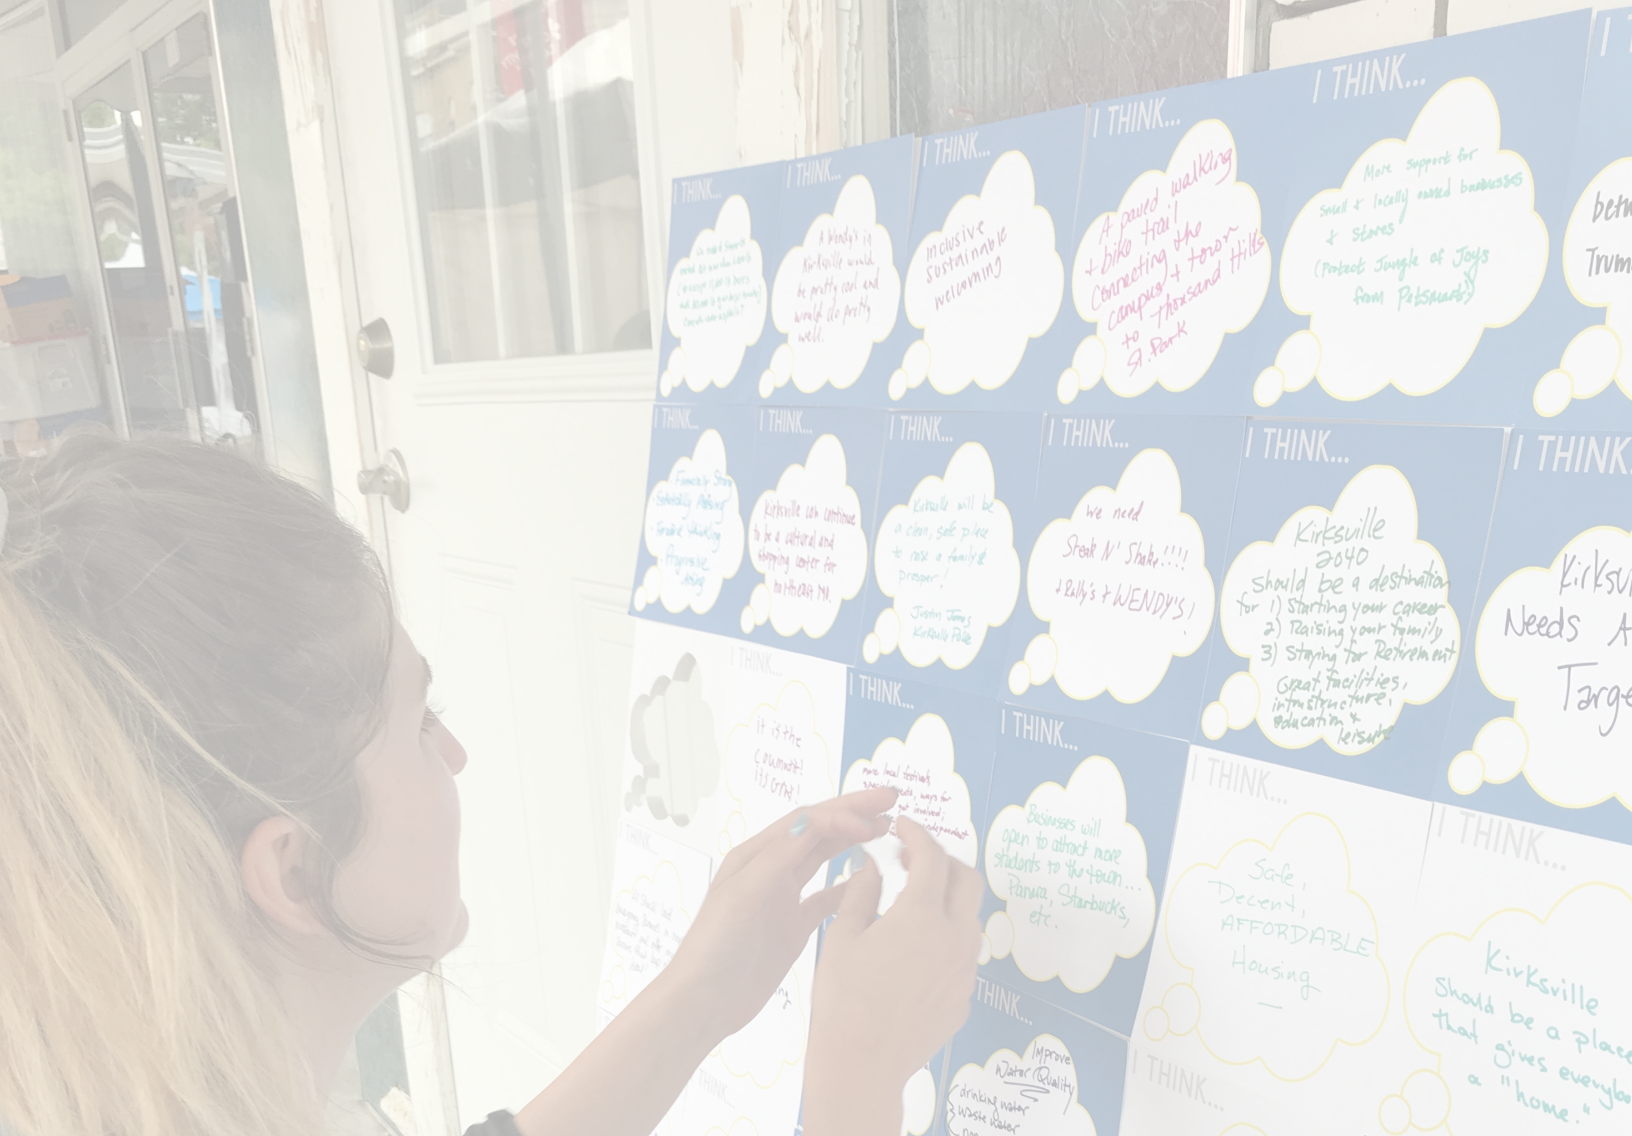 I THINK...
A Wendy's in
Kirksville would
be pretty cool and
would do pretty
well.
I THINK...
inclusive
sustainable
welcoming
I THINK...
A paved walking
+ bike trail
connecting the
campus + town
to Thousand Hills
St. Park
I THINK...
More support for
small & locally owned businesses
& stores
(Protect Jungle of Joys
from Petsmart)
I THINK...
I THINK...
Financially Strong
Forward thinking
Progressive
I THINK...
Kirksville can continue
to be a cultural and
shopping center for
northeast MO.
I THINK...
Kirksville will be
a clean, safe place
to raise a family &
prosper!
Justin Jones
Kirksville Police
I THINK...
we need
Steak N' Shake!!!!
+ Rally's + WENDY'S!
I THINK...
Kirksville
2040
Should be a destination
for 1) Starting your career
2) Raising your family
3) Staying for Retirement
Great facilities,
infrastructure,
education &
leisure
I THINK...
Needs A
Targe
I THINK...
it is the
commnt!
its Grat!
I THINK...
more local festivals,
ways for
get involved;
independent
I THINK...
Businesses will
open to attract more
students to the town...
Panera, Starbucks,
etc.
I THINK...
Safe,
Decent,
AFFORDABLE
Housing
I THINK...
Kirksville
Should be a place
that gives everybo
a "home."
THINK...
Improve
Water Quality
drinking water
waste water
I THINK...